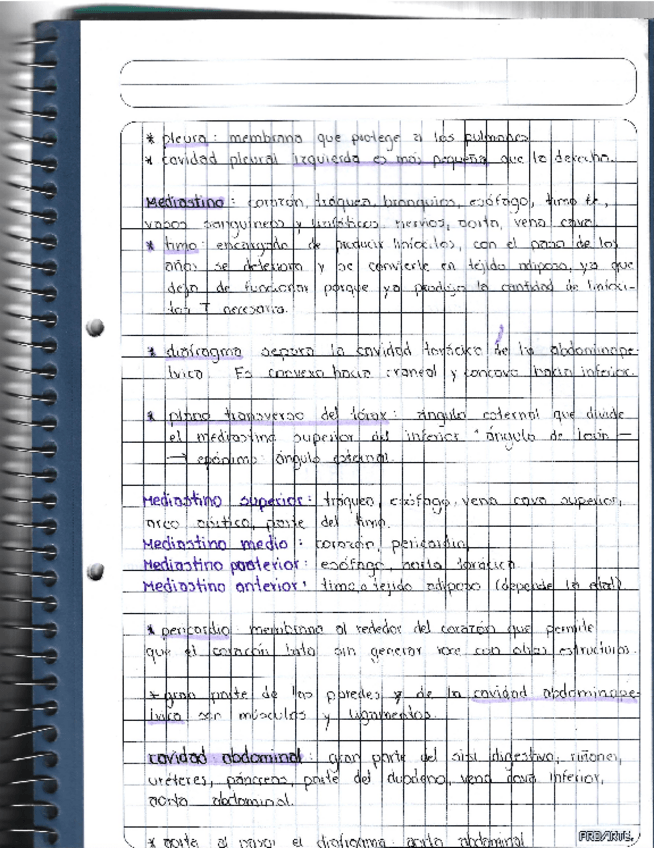 * pleura: membrana que protege a los pulmones
* cavidad pleural izquierda es más pequeña que la derecha.
Mediastino: corazón, tráquea, bronquios, esófago, timo
vasos sanguíneos y linfáticos, nervios, aorta, vena cava.
* timo: encargado de producir linfocitos, con el paso de los
años se deteriora y se convierte en tejido adiposo, ya que
deja de funcionar porque ya produjo la cantidad de linfoci-
tos T necesaria.
* diafragma separa la cavidad torácica de la abdominope-
lvica. Es convexo hacia craneal y concavo hacia inferior.
* plano transverso del tórax: ángulo esternal que divide
el mediastino superior del inferior "ángulo de Louis —
→ epónimo: ángulo esternal.
Mediastino superior: tráquea, esófago, vena cava superior,
arco aórtico, parte del timo.
Mediastino medio: corazón, pericardio,
Mediastino posterior: esófago, aorta torácica.
Mediastino anterior: timo o tejido adiposo (depende la edad)
* pericardio: membrana al rededor del corazón que permite
que el corazón lata sin generar roce con otras estructuras.
* gran parte de las paredes y de la cavidad abdominope-
lvica son músculos y ligamentos.
cavidad abdominal: gran parte del sist digestivo, riñones,
uréteres, páncreas, parte del duodeno, vena cava inferior,
aorta abdominal.
* aorta al pasar el diafragma: aorta abdominal
PROARTE